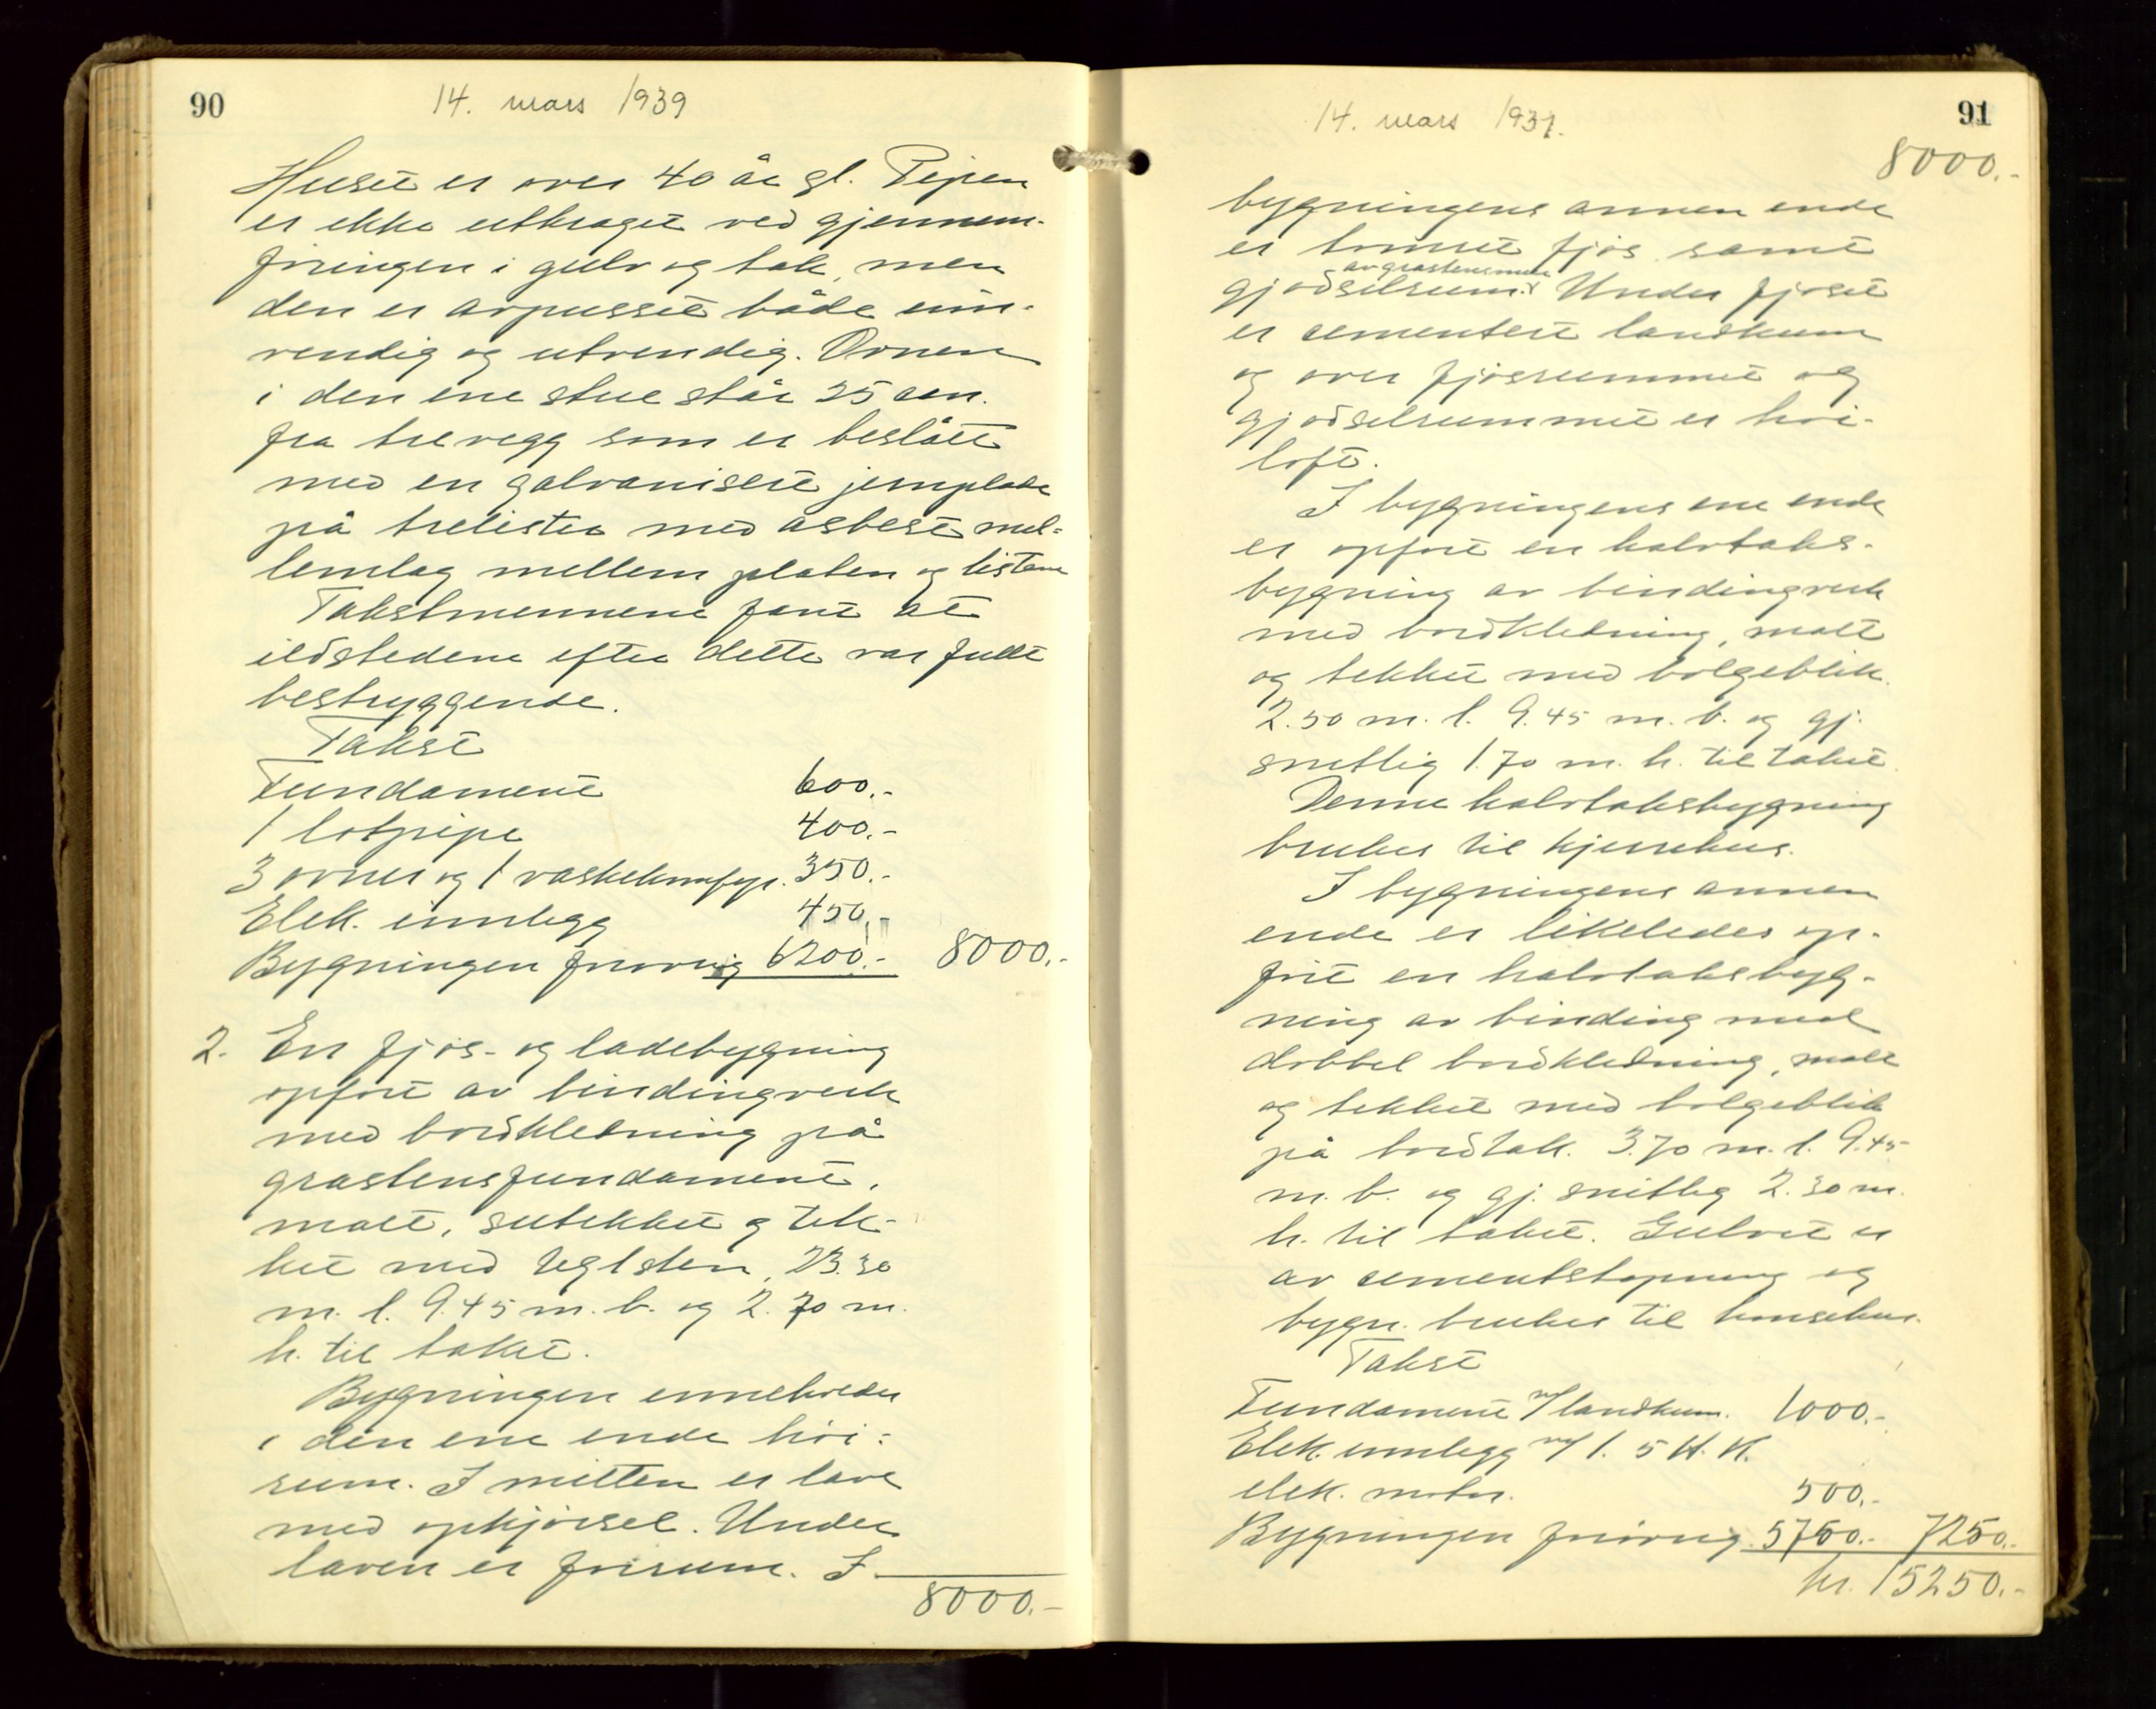 90
14. mars 1939
Huset er over 40 år gl. Pipen
er ikke utkraget ved gjennem-
føringen i gulv og tak, men
den er avpusset både inn-
vendig og utvendig. Ovnen
i den ene stue står 25 cm.
fra trevegg som er beslått
med en galvanisert jernplate
på trelister med asbest mel-
lemlag mellem platen og listene
Takstmennene fant at
ildstedene efter dette var fullt
betryggende.
Takst
Fundament 600.-
1 løtpipe 400.-
3 ovner og 1 vaskekomfyr. 350.-
Elek. innlegg 450.-
Bygningen forøvrig 6200.- 8000.-
2. En fjøs- og ladebygning
opført av bindingverk
med bordkledning på
gråstensfundament,
malt, sutekket og tek-
ket med teglsten, 23.30
m. l. 9.45 m. b. og 2.70 m.
h. til taket.
Bygningen inneholder
i den ene ende høi-
rum. I mitten er lave
med opkjørsel. Under
laven er fôrrum. I
8000.-
91
14. mars 1939.
8000.-
bygningens annen ende
er tømret fjøs samt
av gråstensmur
gjødselrum. Under fjøset
er cementert landkum
og over fjøsrummet og
gjødselrummet er høi-
loft.
I bygningens ene ende
er opført en halvtaks-
bygning av bindingverk
med bordkledning, malt
og tekket med bølgeblik.
2.50 m. l. 9.45 m. b. og gj.
snittlig 1.70 m. h. til taket.
Denne halvtaksbygning
brukes til kjerrehus.
I bygningens annen
ende er likeledes op-
ført en halvtaksbyg-
ning av binding med
dobbel bordkledning, malt
og tekket med bølgeblik
på bordtak. 3.70 m. l. 9.45
m. b. og gj. snittlig 2.30 m.
h. til taket. Gulvet er
av cementstøpning og
bygn. brukes til hønsehus.
Takst
Fundament m/landkum. 1000.-
Elek. innlegg m/ 1. 5 H.K.
elek. motor. 500.-
Bygningen forøvrig. 5750.- 7250.-
kr. 15250.-